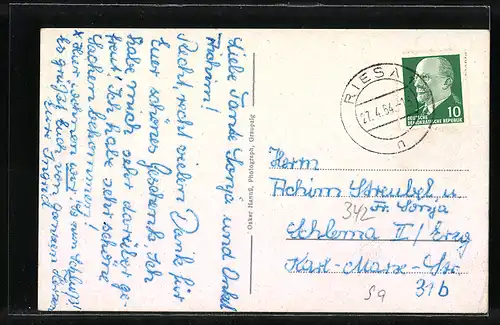 Liebe Tante Sonja und Onkel
Achim!
Recht, recht vielen Dank für
Euer schönes Geschenk. Ich
habe mich sehr darüber ge-
freut! Ich habe sehr schöne
Sachen bekommen!
Es grüßt Euch von ganzem Herzen
Eure Ingrid
Oskar Hanuß, Photograph, Graupzig
RIESA
27.4.64
n
10
DEUTSCHE
DEMOKRATISCHE REPUBLIK
Herrn
Achim Streubel u.
Fr. Sonja
342
Schlema II / Erzg
Karl-Marx-Str
31b